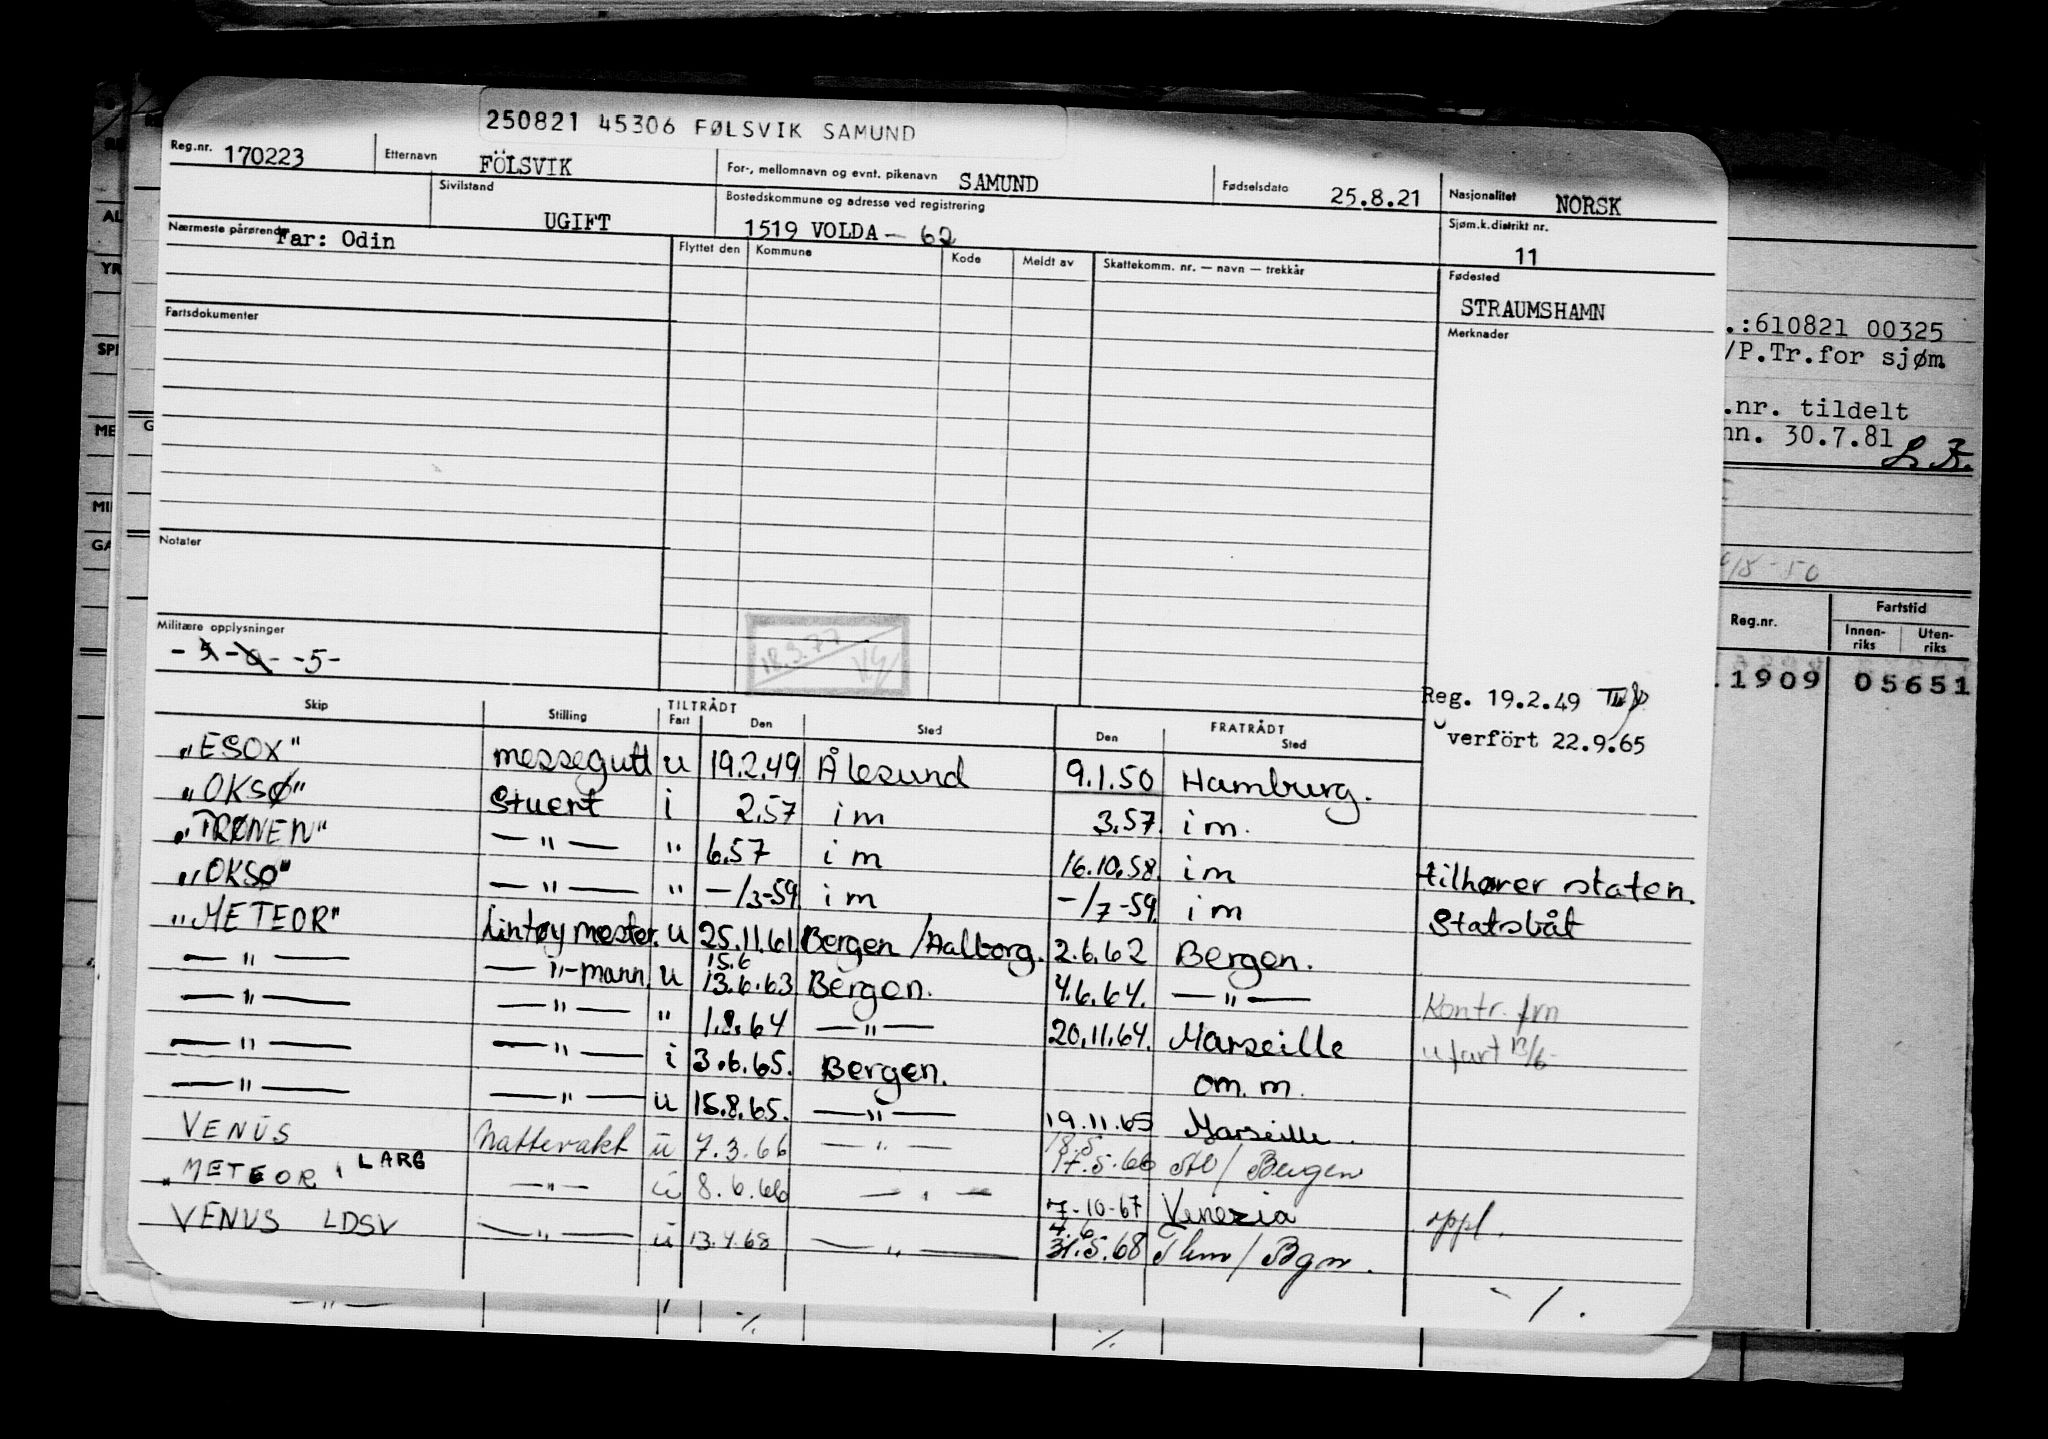 250821 45306 FØLSVIK SAMUND
Reg.nr. 170223 Etternavn FÖLSVIK For-, mellomnavn og evnt. pikenavn SAMUND Fødselsdato 25.8.21 Nasjonalitet NORSK
Sivilstand UGIFT Bostedskommune og adresse ved registrering 1519 VOLDA - 62 Sjøm.k.distrikt nr. 11
Nærmeste pårørende Far: Odin Flyttet den Kommune Kode Meldt av Skattekomm. nr. — navn — trekkår Fødested
STRAUMSHAMN
Fartsdokumenter Merknader
.:610821 00325
/P.Tr.for sjøm.
.nr. tildelt
nn. 30.7.81
Notater
Reg.nr. Fartstid
Innen-riks Uten-riks
.1909 05651
Militære opplysninger
-5-
18.3.77
Reg. 19.2.49
verfört 22.9.65
Skip Stilling TILTRÅDT Fart Den Sted FRATRÅDT Den Sted
"ESOX" messegutt u 19.2.49 Ålesund 9.1.50 Hamburg.
"OKSØ" Stuert i 2.57 i m 3.57. i m.
"TRØNEN" — " — " 6.57 i m 16.10.58. i m tilhører staten.
"OKSØ" — " — " -/3-59. i m -/7-59. i m Statsbåt
"METEOR" Lintøymester. u 25.11.61 Bergen/Aalborg. 2.6.62 Bergen.
— " — — " -mann. u 15.6 13.6.63 Bergen. 4.6.64. — " — Kontr. frn
— " — — " — " 1.8.64 — " — 20.11.64. Marseille u fart 13/6-
— " — — " — i 3.6.65. Bergen. om. m.
— " — — " — u 15.8.65. — " — 19.11.65 Marseille.
VENUS Nattevakt u 7.3.66 — " — 18.5 17.5.66 / Bergen
METEOR, LARG — " — u 8.6.66 — " — 7-10-67 Venezia oppl.
VENUS LDSV — " — u 13.4.68 — " — 4.6 31.5.68 / Bgn.